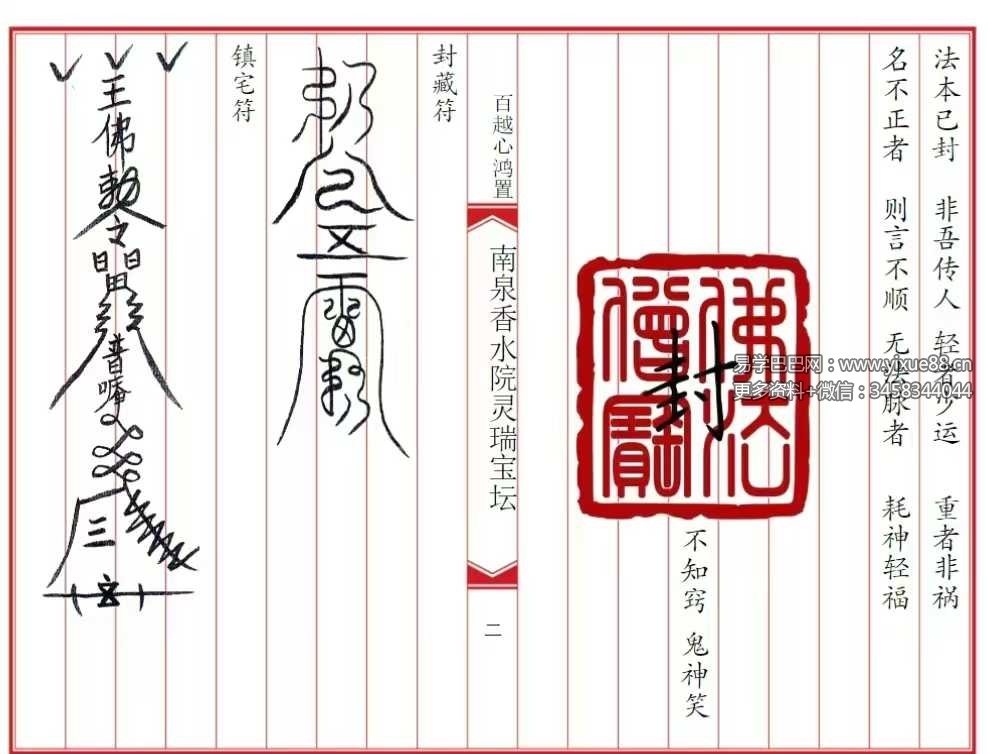 法本已封 非吾传人 轻者少运 重者非祸
名不正者 则言不顺 无法脉者 耗神轻福
佛法僧寶
封
不知窍 鬼神笑
易学巴巴网：www.yixue88.cn
更多资料+微信：3458344044
百越心鸿置
南泉香水院灵瑞宝坛
二
封藏符
镇宅符
王佛勅令
普唵
三